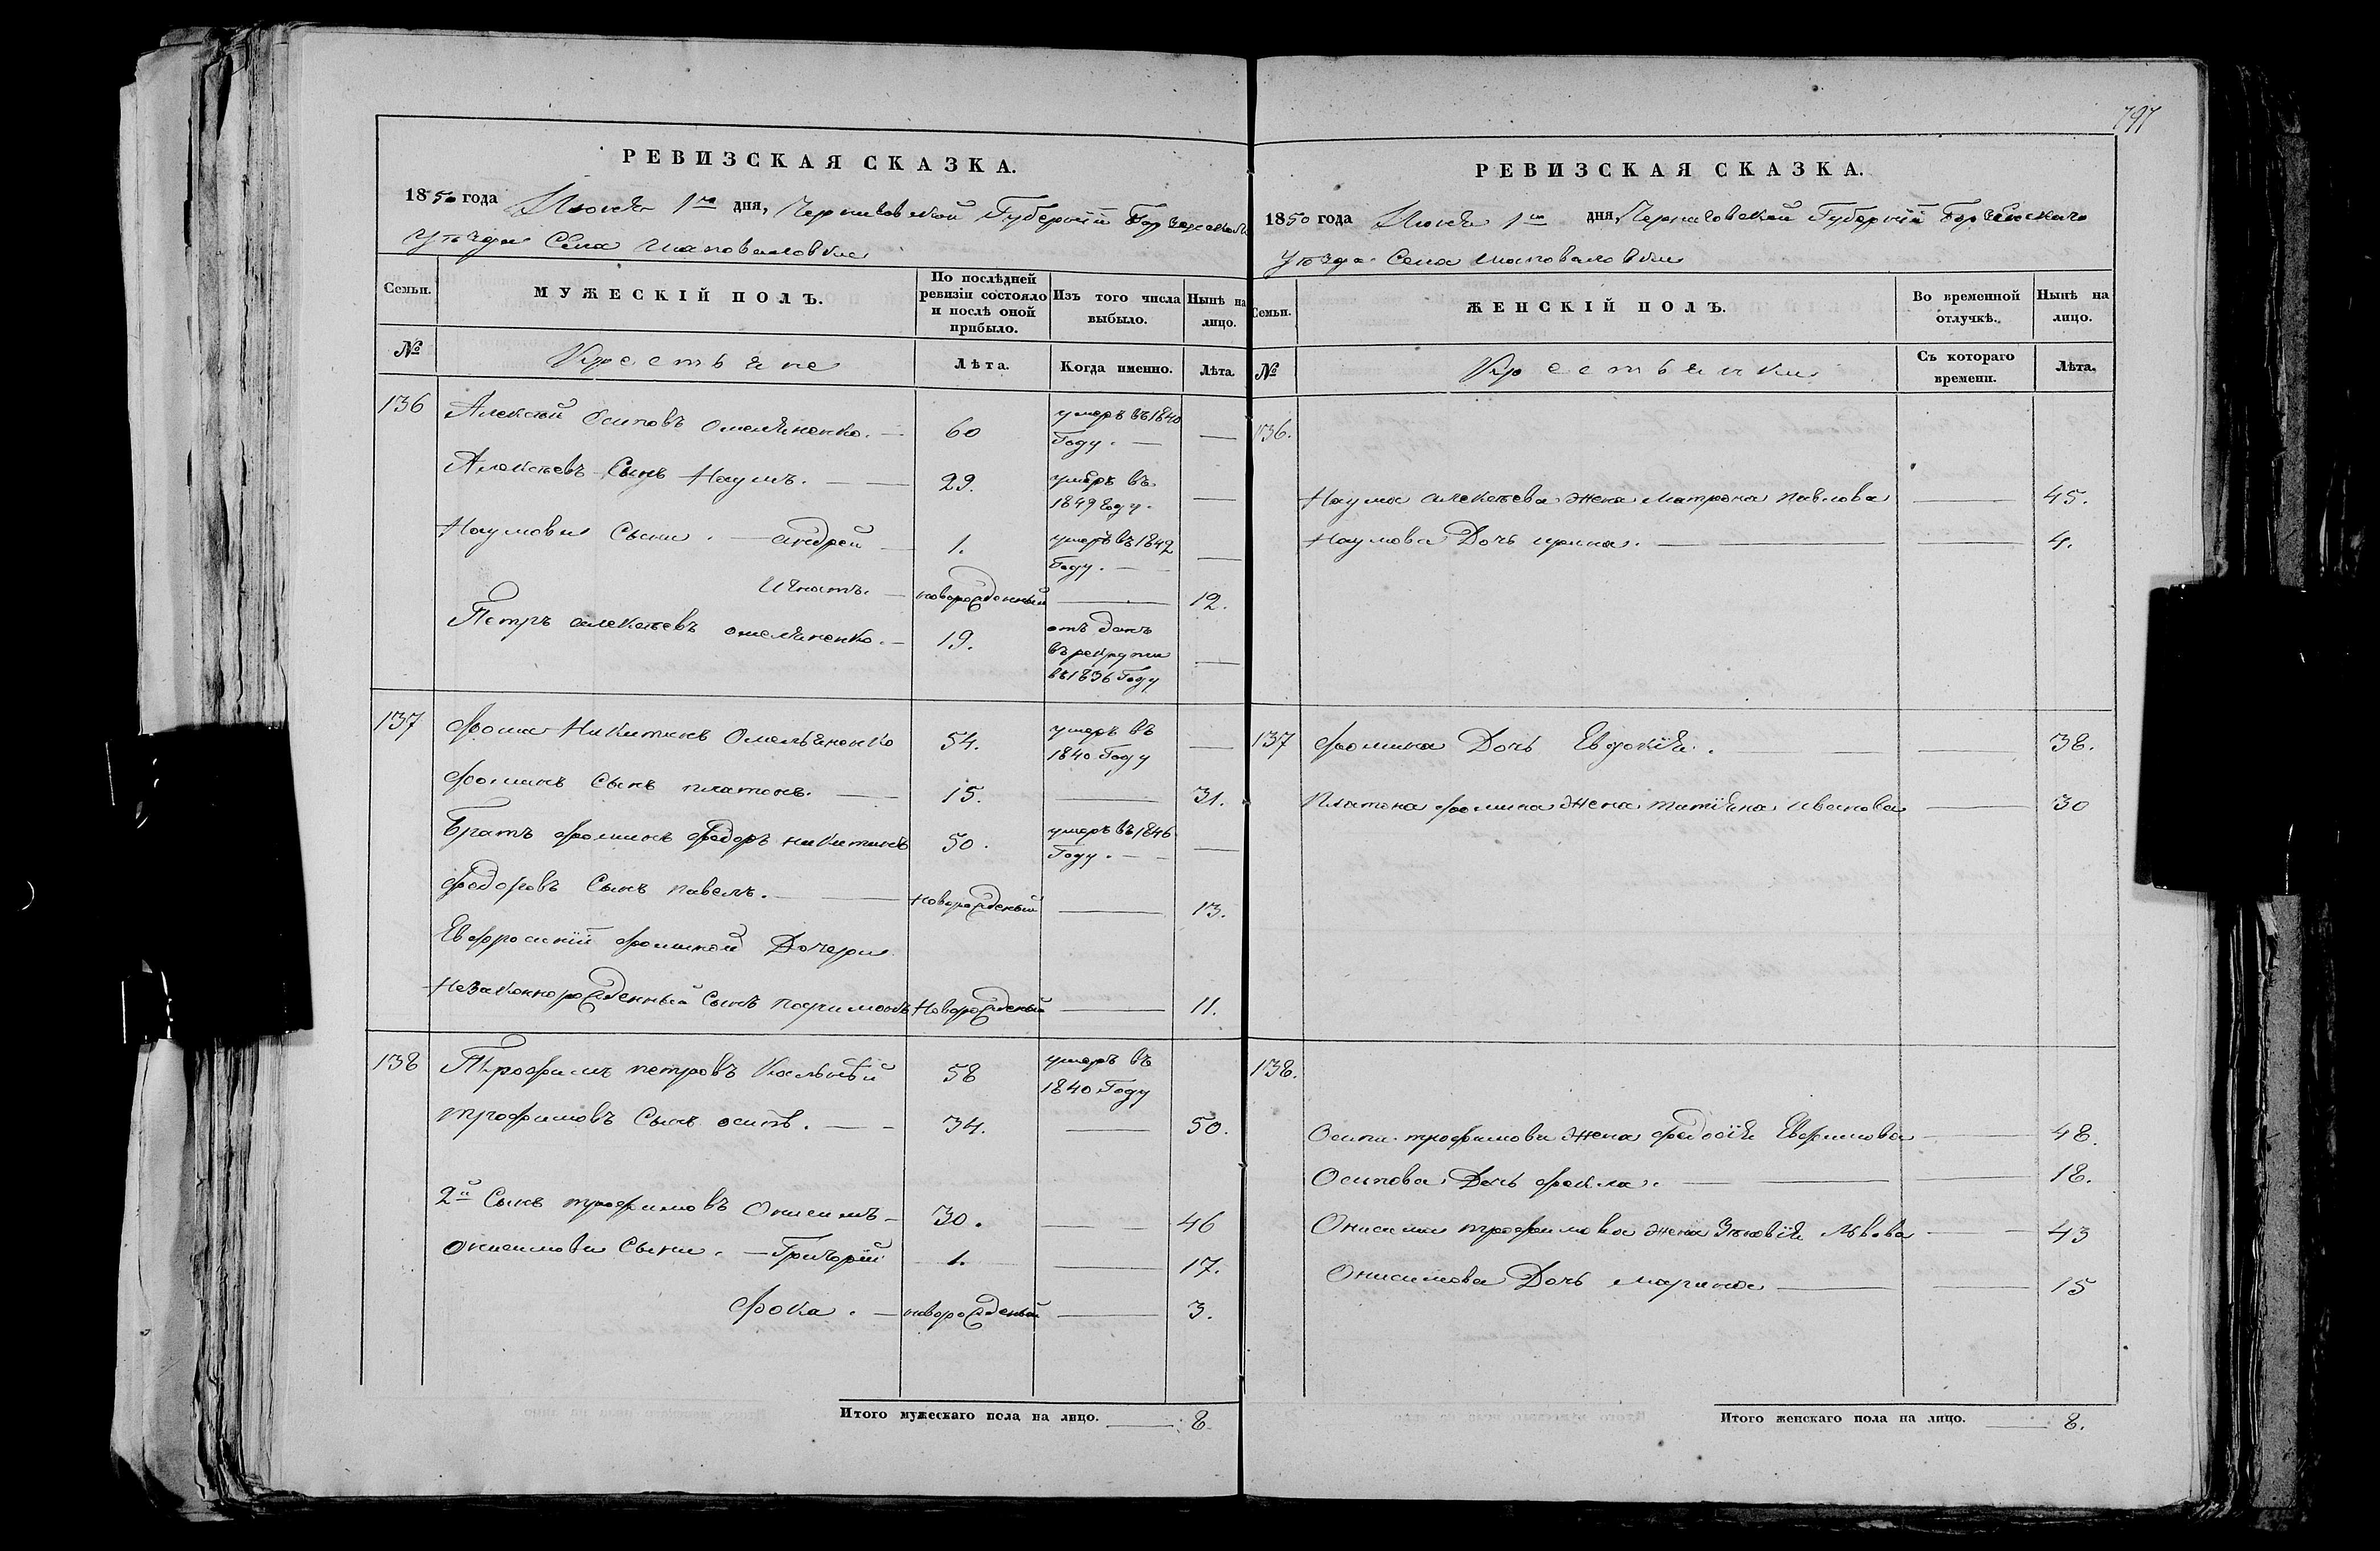 РЕВИЗСКАЯ СКАЗКА.
1850 года Июня 1го дня, Черниговской Губерніи Борзенскаго
уѣзда Села Шаповаловки
Семьи.
МУЖЕСКІЙ ПОЛЪ.
По послѣдней ревизіи состояло и послѣ оной прибыло.
Изъ того числа выбыло.
Нынѣ на лицо.
№
Крестьяне
Лѣта.
Когда именно.
Лѣта.
136 Алексѣй Осиповъ Омеляненко. — 60 умеръ въ 1840 —
Году. —
Алексѣевъ Сынъ Наумъ. — 29. умеръ въ —
1849 Году.
Наумовы Сыни. — андрей — 1. умеръ въ 1842 —
Году. —
Игнатъ. — новорожденный — 12.
Петръ алексѣевъ омеляненко. — 19. отъ данъ
въ рекруты —
въ 1836 Году
137 Фома Никитинъ Омельяненко 54. умеръ въ —
1840 Году
Фоминъ Сынъ платонъ. — 15. — 31.
Братъ Фоминъ Федоръ никитинъ 50. умеръ въ 1846 —
Году. —
Федоровъ Сынъ павелъ. — новорожденый — 13.
Евфросиніи Фоминой Дочери
Незаконнорожденный Сынъ Новорожденый — 11.
138 Трофимъ петровъ 58 умеръ въ
1840 Году
трофимовъ Сынъ осипъ. — 34. — 50.
2й Сынъ трофимовъ Онисимъ — 30. — 46
онисимовы Сыни. — Григорій 1. — 17.
Фока. — новорожденый — 3.
Итого мужескаго пола на лицо. — 8
797
РЕВИЗСКАЯ СКАЗКА.
1850 года Июня 1го дня, Черниговской Губерніи Борзенскаго
уѣзда Села Шаповаловки
Семьи.
ЖЕНСКІЙ ПОЛЪ.
Во временной отлучкѣ.
Нынѣ на лицо.
№
Крестьянки
Съ котораго времени.
Лѣта.
136.
Наума алексѣева жена матрона павлова — 45.
Наумова Дочь ирина. — 4.
137 Фомина Дочь Евдокія. — 38.
Платона Фомина жена татіяна иванова — 30
138.
Осипа трофимова жена федосія Евфимова — 48.
Осипова Дочь фекла. — 18.
Онисима трофимова жена Зѣновія Львова — 43
Онисимова Дочь марина — 15
Итого женскаго пола на лицо. — 8.